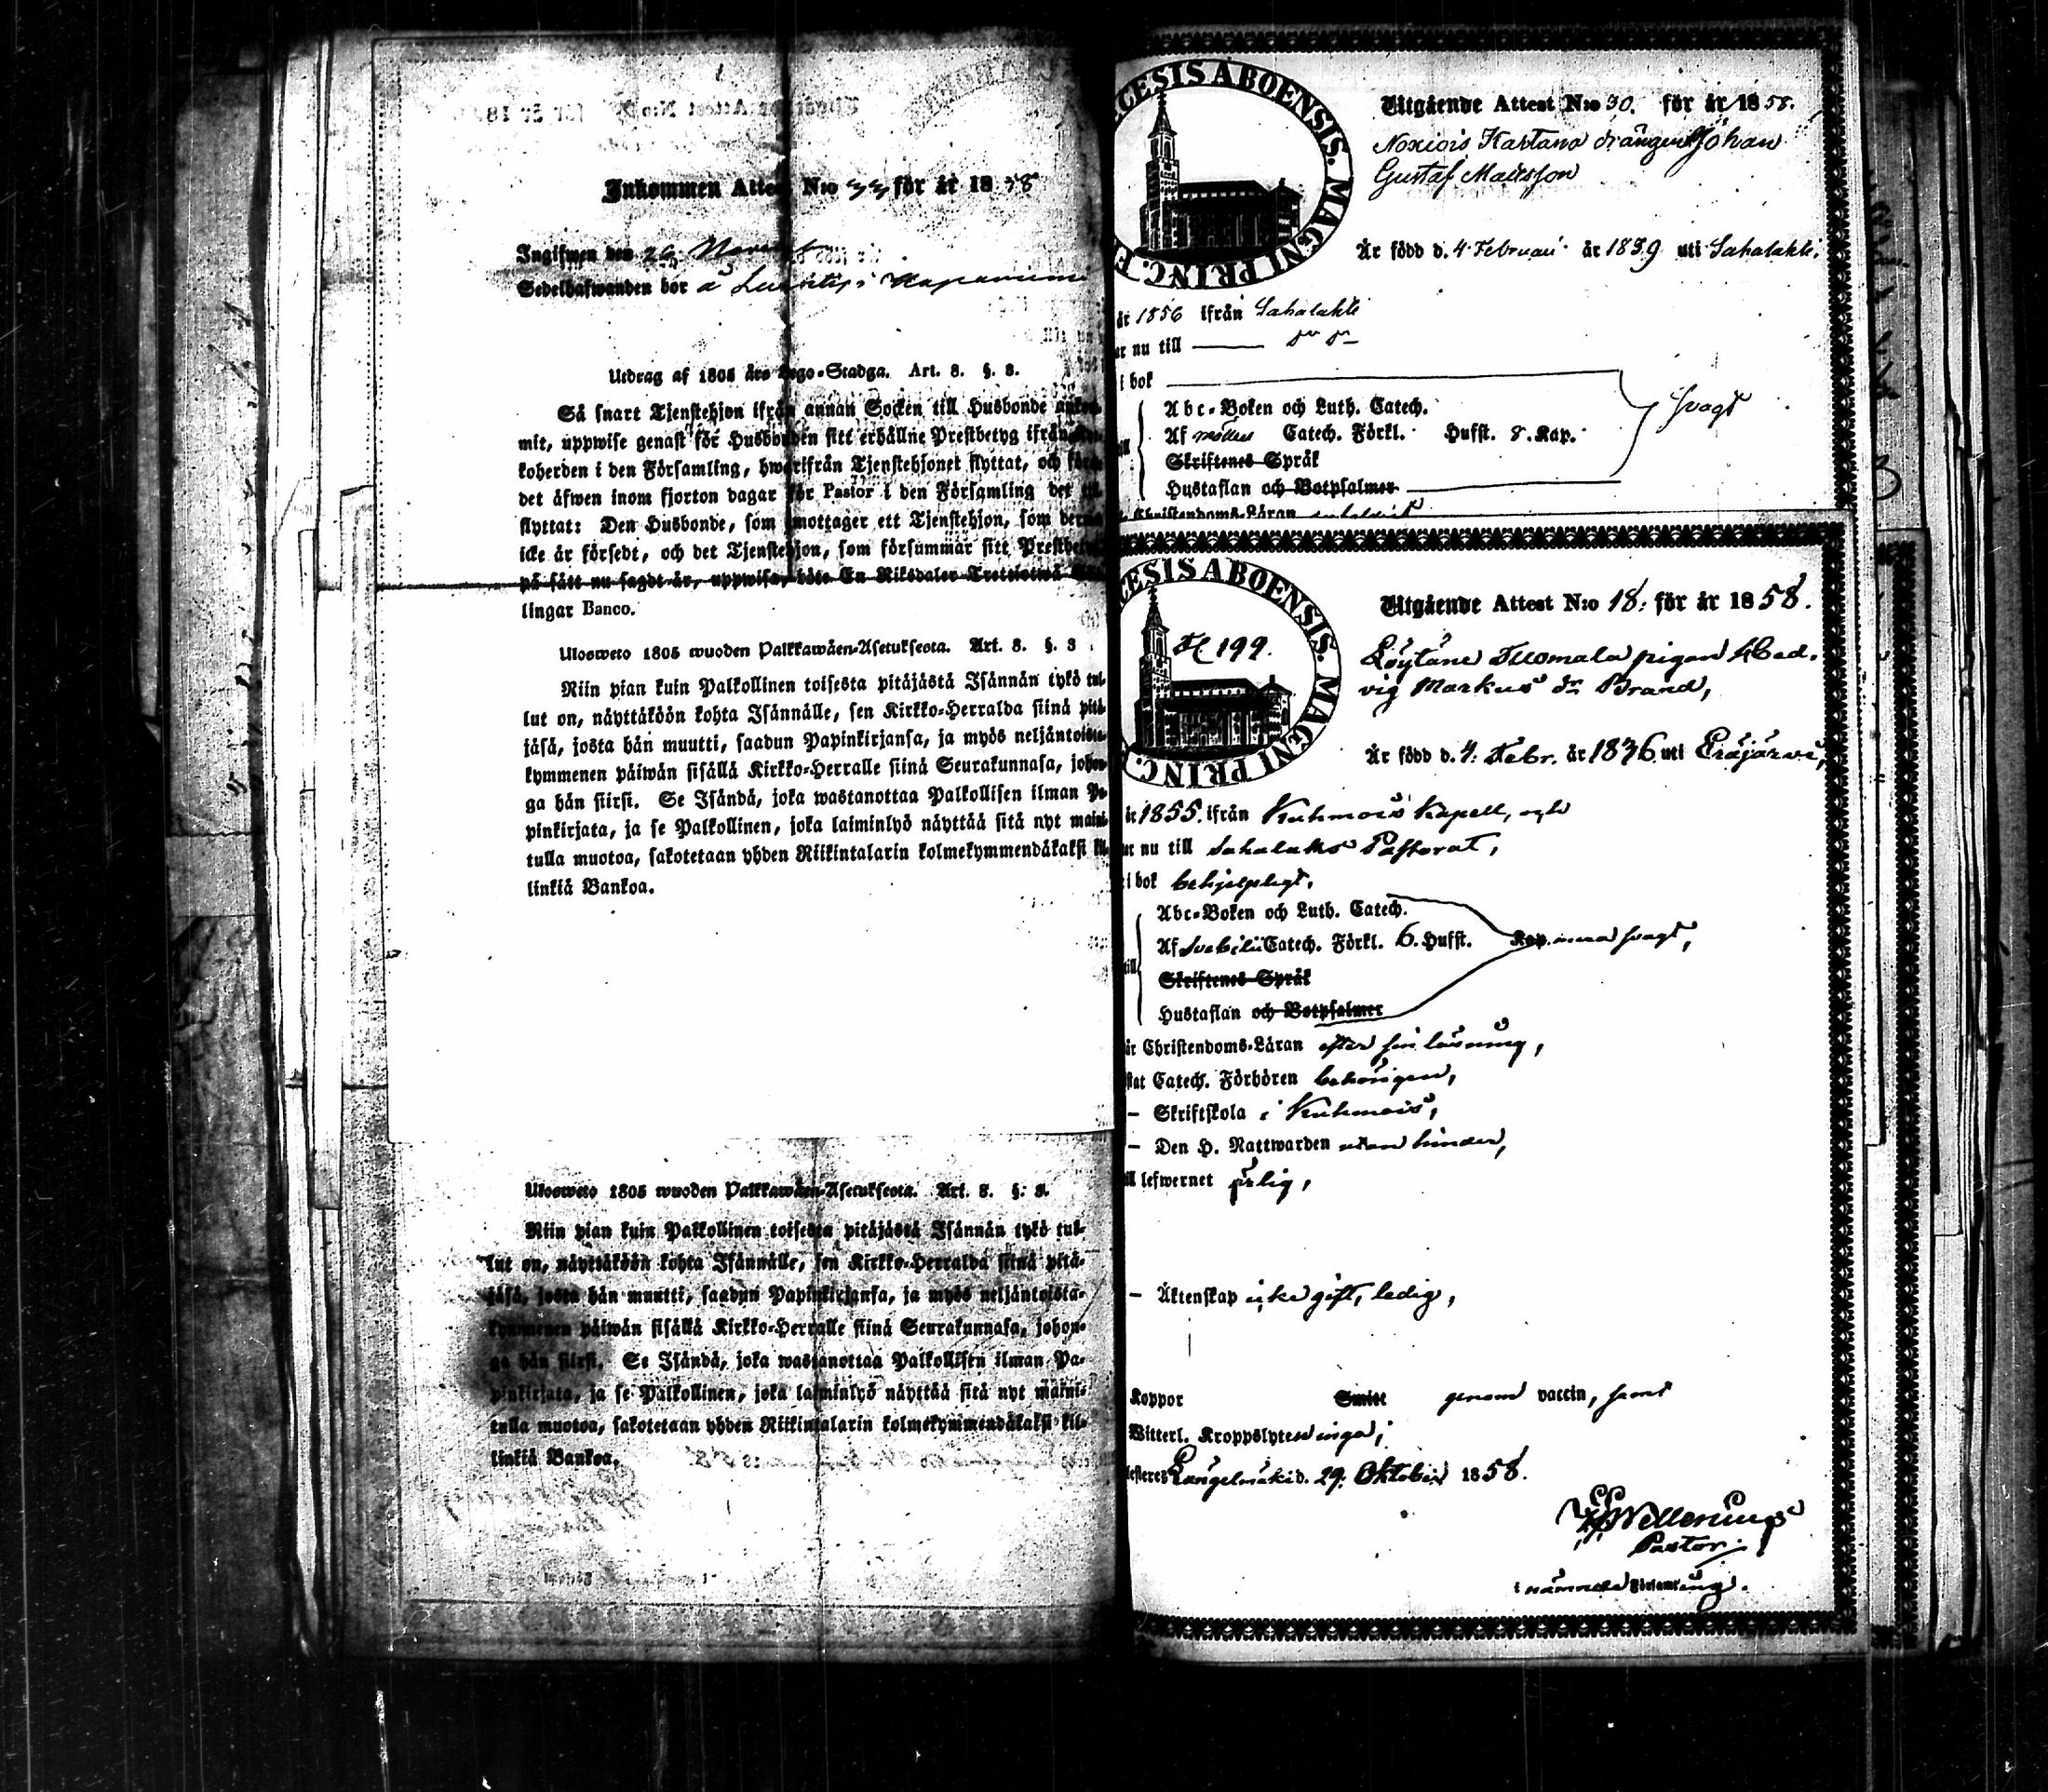 Inkommen Attest N:o 33 för år 1858
Ingifwen den 26 Novemb
Sedelhafwanden bor å
Utdrag af 1805 års Lego-Stadga. Art. 8. §. 8.
Så snart Tjenstehjon ifrån annan Socken till Husbonde ankom-
mit, uppwise genast för Husbonden sitt erhållne Prestbetyg ifrån
koherden i den Församling, hwarifrån Tjenstehjonet flyttat, och före
det äfwen inom fjorton dagar för Pastor i den Församling det
flyttat: Den Husbonde, som emottager ett Tjenstehjon, som dermed
icke är försedt, och det Tjenstehjon, som försummar sitt Prestbetyg
på sätt nu sagdt är, uppwisa, böte En Riksdaler Trettiotwå
lingar Banco.
Ulosweto 1805 wuoden Palkkawäen-Asetuksesta. Art. 8. §. 8.
Niin pian kuin Palkollinen toisesta pitäjästä Isännän tykö tul-
lut on, näyttäköön kohta Isännälle, sen Kirkko-Herralda siinä pitä-
jäsä, josta hän muutti, saadun Papinkirjansa, ja myös neljäntoista-
kymmenen päiwän sisällä Kirkko-Herralle siinä Seurakunnasa, johon-
ga hän siirsi. Se Isändä, joka wastanottaa Palkollisen ilman Pa-
pinkirjata, ja se Palkollinen, joka laiminlyö näyttää sitä nyt maini-
tulla muotoa, sakotetaan yhden Riikintalarin kolmekymmendäkaksi kil-
linkiä Bankoa.
Ulosweto 1805 wuoden Palkkawäen-Asetuksesta. Art. 8. §. 8.
Niin pian kuin Palkollinen toisesta pitäjästä Isännän tykö tul-
lut on, näyttäköön kohta Isännälle, sen Kirkko-Herralda siinä pitä-
jäsä, josta hän muutti, saadun Papinkirjansa, ja myös neljäntoista-
kymmenen päiwän sisällä Kirkko-Herralle siinä Seurakunnasa, johon-
ga hän siirsi. Se Isändä, joka wastanottaa Palkollisen ilman Pa-
pinkirjata, ja se Palkollinen, joka laiminlyö näyttää sitä nyt maini-
tulla muotoa, sakotetaan yhden Riikintalarin kolmekymmendäkaksi kil-
linkiä Bankoa.
CESIS ABOENSIS. MAGNI PRINC. F
Utgående Attest N:o 30. för år 1858.
Kartano drängen Johan
Gustaf Mattsson
Är född d. 4 Februari år 1839 uti Sahalahti.
år 1856 ifrån Sahalahti
ar nu till
i bok
Abc-Boken och Luth. Catech.
Af Catech. Förkl. Hufst. 8. Kap. svagt
Skriftenes Språk
Hustaflan och Botpsalmer
Christendoms-Läran
CESIS ABOENSIS. MAGNI PRINC.
199.
Utgående Attest N:o 18. för år 1858.
Löytäne Tuomala pigan Hed-
vig Markus dr Brand,
Är född d. 4. Febr. år 1836 uti Eräjärvi,
år 1855. ifrån Kuhmois Kapell, och
ar nu till Sahalaks Pastorat,
i bok behjelpligt,
Abc-Boken och Luth. Catech.
Af Svebilii Catech. Förkl. 6. Hufst. Kap. svagt,
Skriftenes Språk
Hustaflan och Botpsalmer
är Christendoms-Läran efter sin läsning,
stat Catech. Förhören behörigen,
— Skriftskola i Kuhmois,
— Den H. Nattwarden utan hinder,
ill lefwernet ärlig,
— Äktenskap icke gift, ledig,
Koppor Smitt genom vaccin, samt
Witterl. Kroppslyten inga;
Längelmäki d. 29. Oktober 1858.
Pastor
i nämnde Församling.